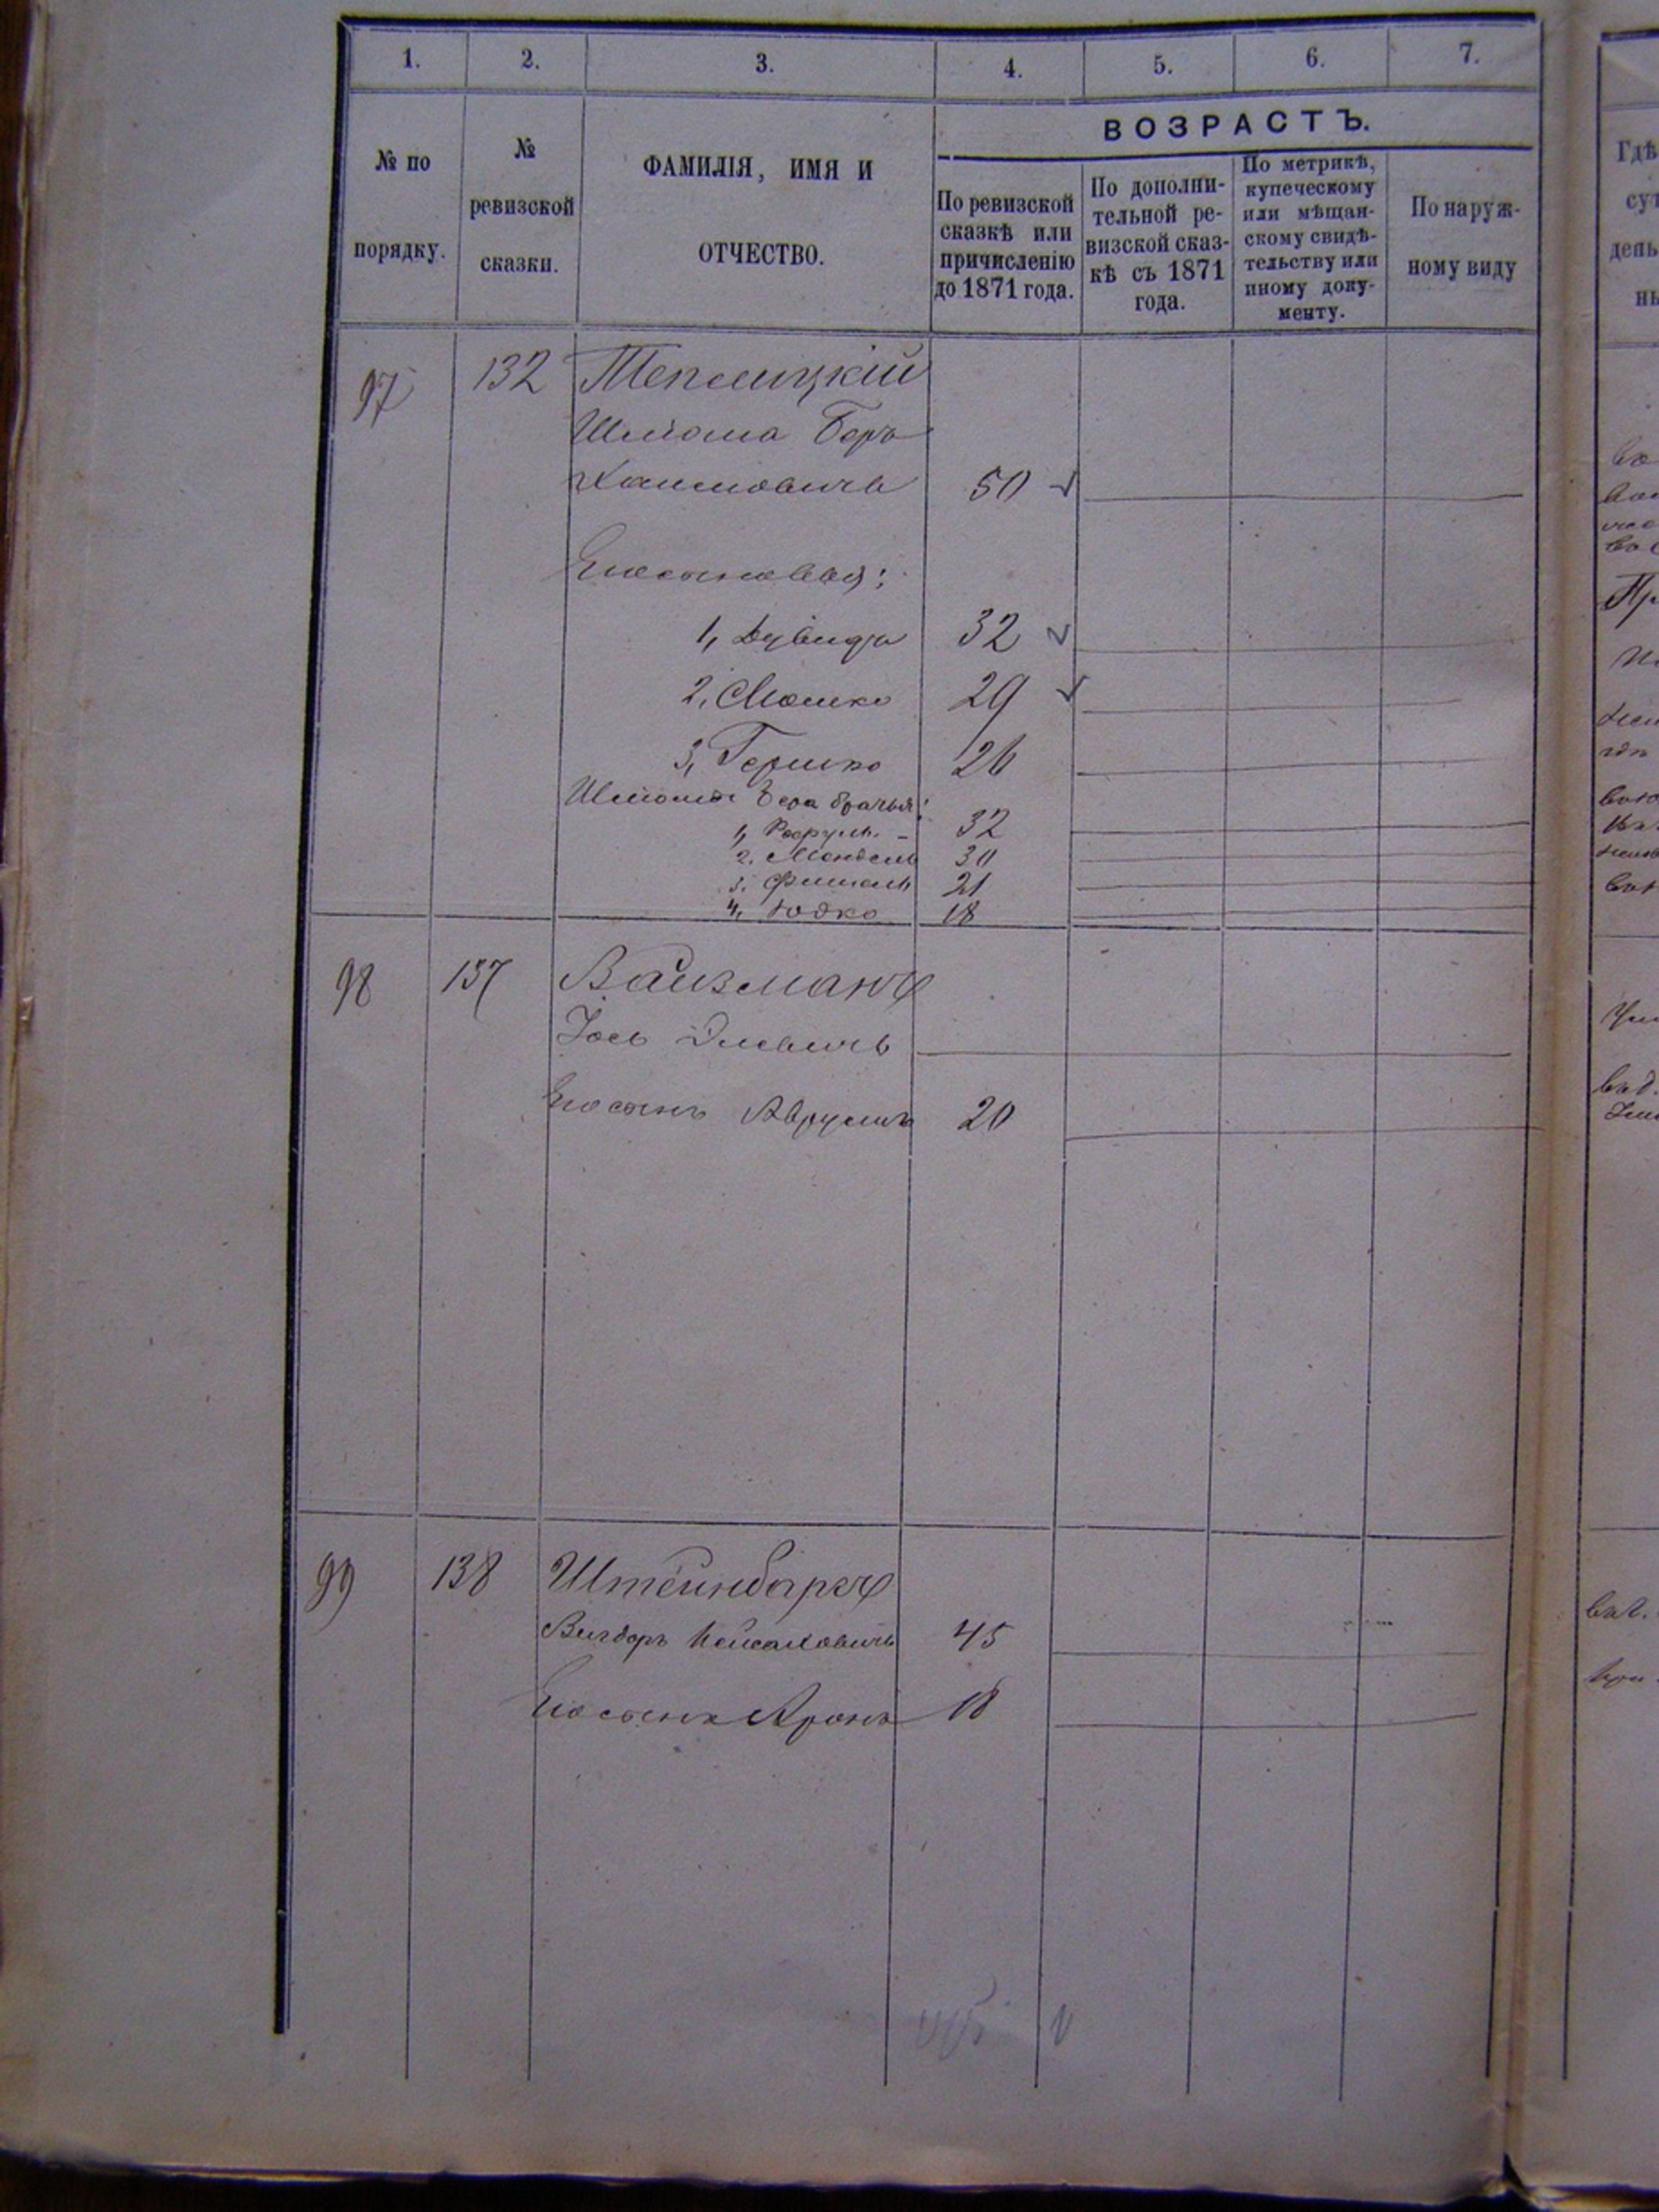 1. 2. 3. 4. 5. 6. 7.
№ по порядку.
№ ревизской сказки.
ФАМИЛІЯ, ИМЯ И ОТЧЕСТВО.
ВОЗРАСТЪ.
По ревизской сказкѣ или причисленію до 1871 года.
По дополни-
тельной ре-
визской сказ-
кѣ съ 1871
года.
По метрикѣ,
купеческому
или мѣщан-
скому свидѣ-
тельству или
иному доку-
менту.
По наруж-
ному виду
97 132 Теплицкій
Шлиома Беръ
Хаимовичъ 50
Его сыновья:
1, Дувидъ 32
2, Мошко 29
3, Гершко 26
Шлиома Бера братья:
1, 32
2. Мендель 30
3. Фишель 21
4, Юдко 18
98 137 Вайзманъ
Іось Элевичъ
Его сынъ Аврумъ 20
99 138 Штейнбергъ
Вигдоръ 45
Его сынъ Аронъ 18
Гдѣ